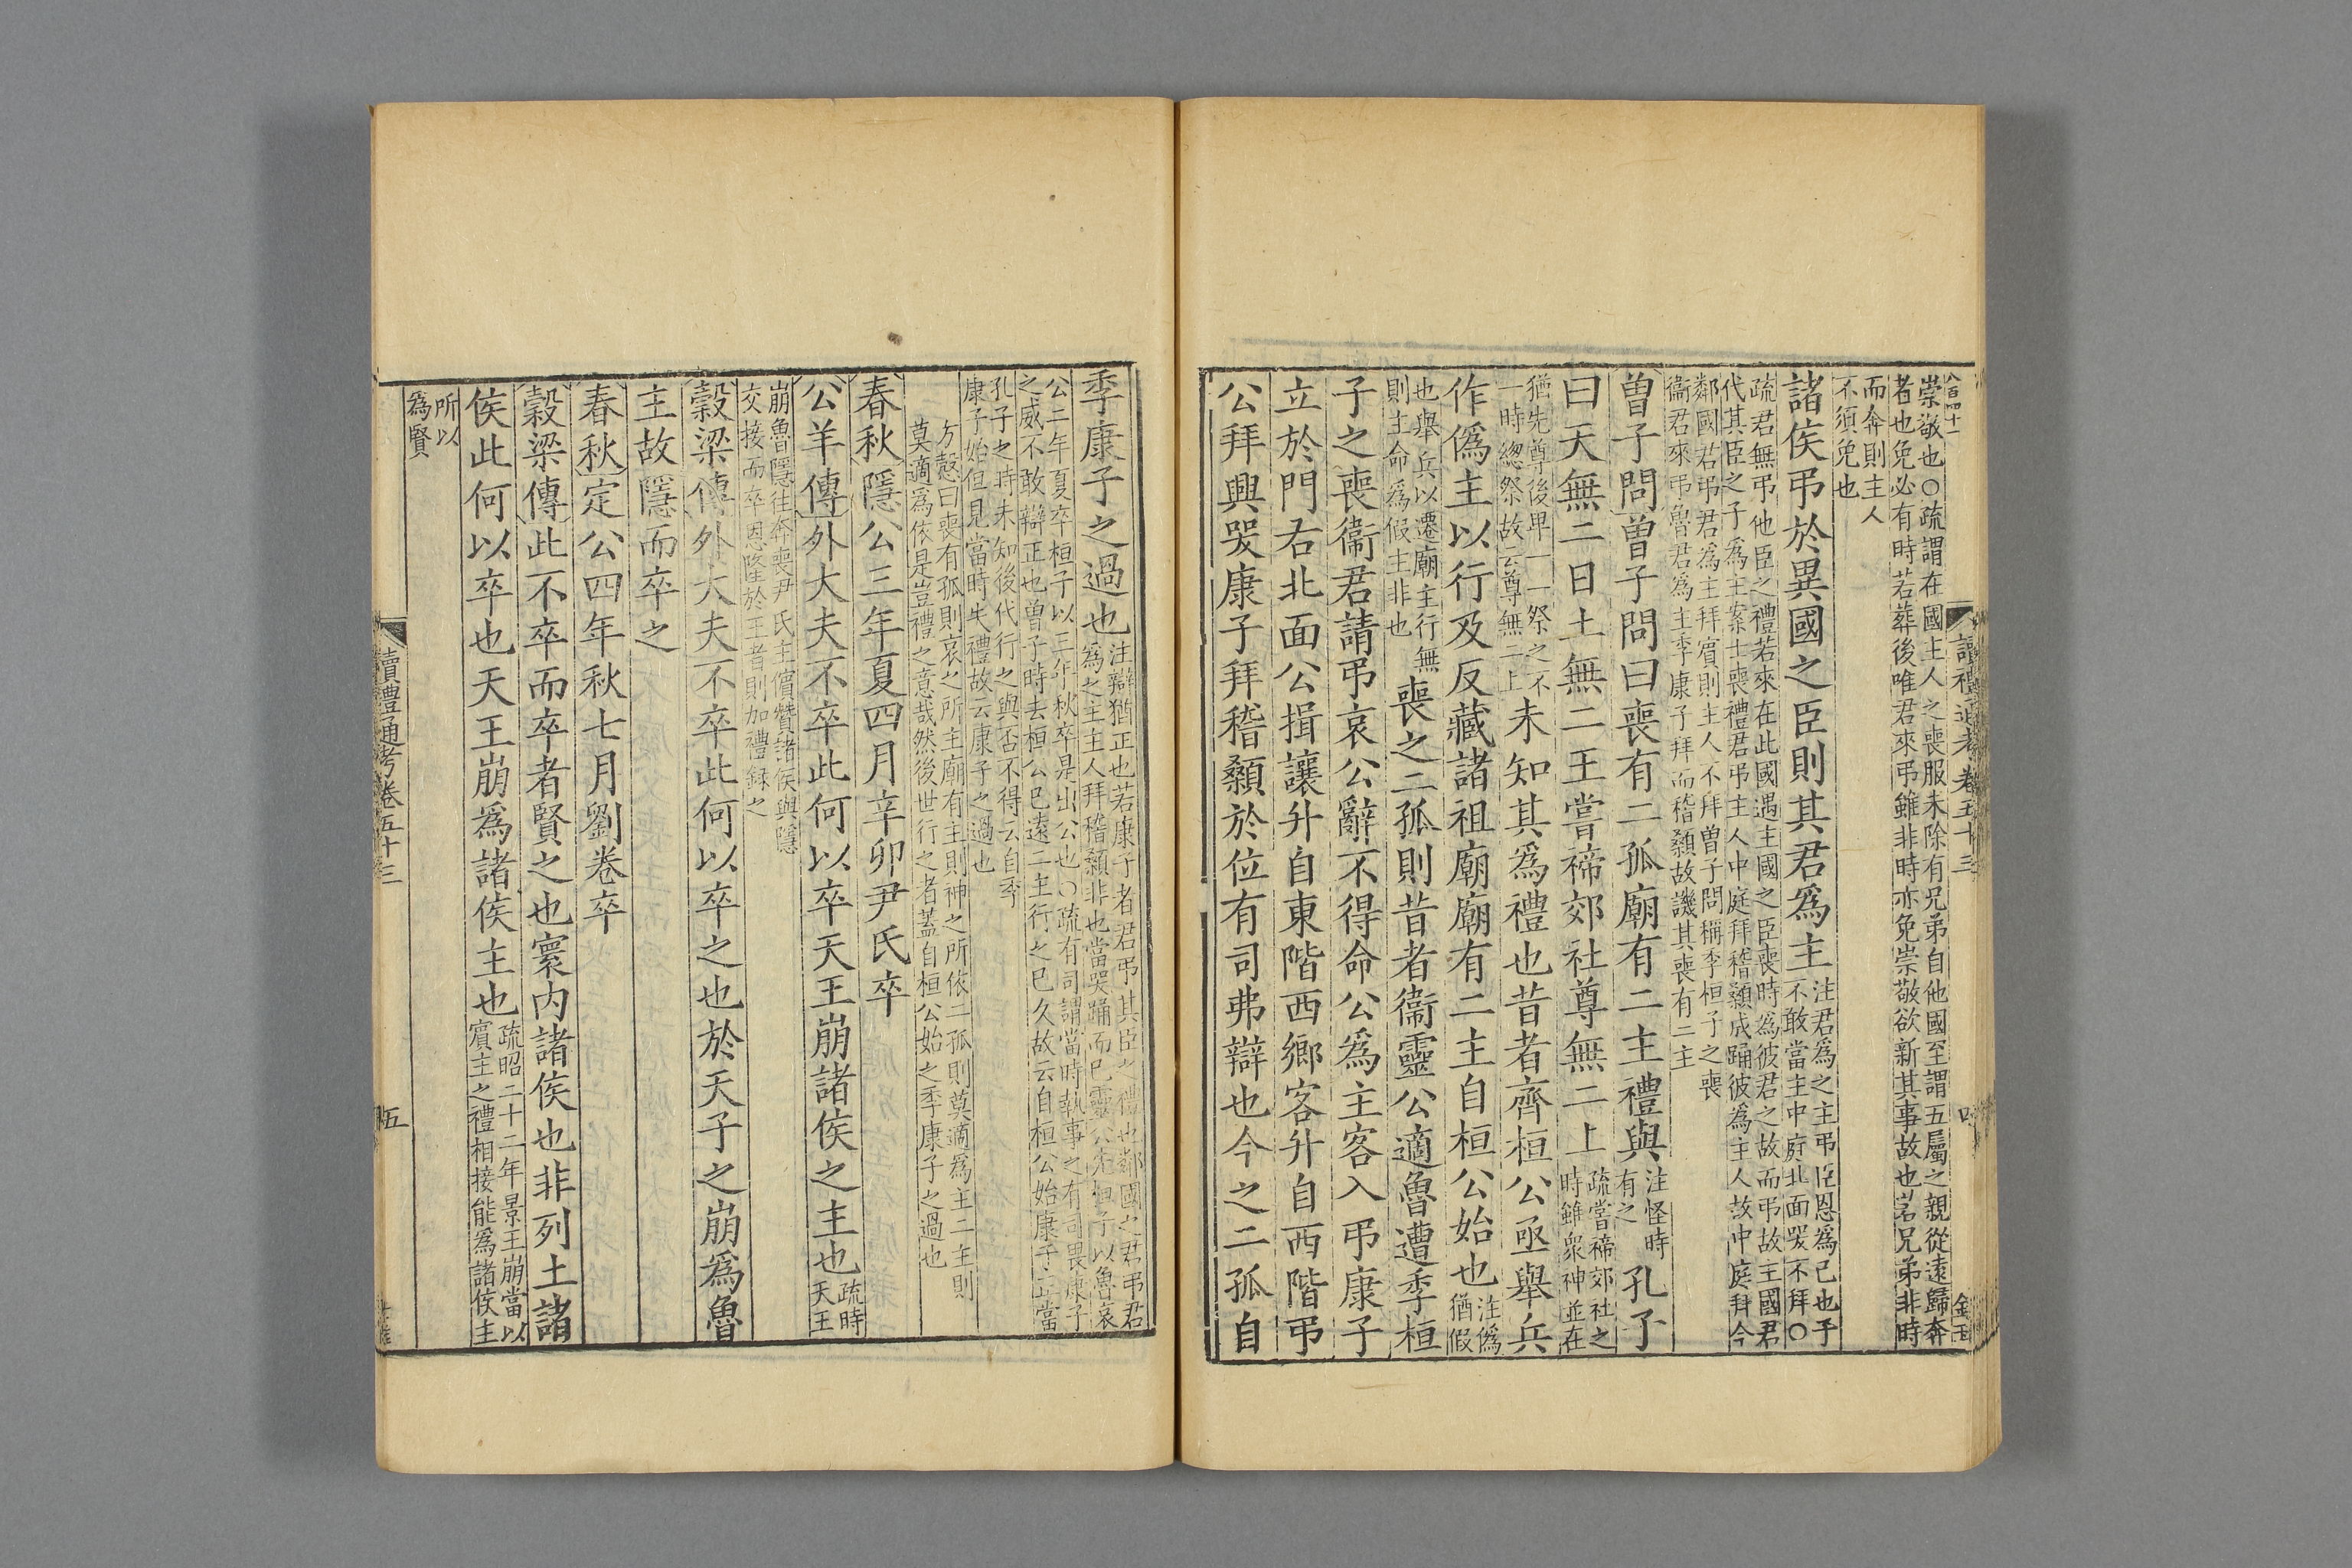 八百四十一
崇敬也○疏謂在國主人之喪服未除有兄弟自他國至謂五屬之親從遠歸奔
者也免必有時若葬後唯君來弔雖非時亦免崇敬欲新其事故也若兄弟非時
而奔則主人
不須免也
諸侯弔於異國之臣則其君爲主
注君爲之主弔臣恩爲已也子
不敢當主中庭北面哭不拜○
疏君無弔他臣之禮若來在此國遇主國之臣喪時爲彼君之故而弔故主國君
代其臣之子爲主案士喪禮君弔主人中庭拜稽顙成踊彼爲主人故中庭拜今
鄰國君弔君爲主拜賓則主人不拜曾子問稱季桓子之喪
衞君來弔魯君爲主季康子拜而稽顙故譏其喪有二主
曾子問曾子問曰喪有二孤廟有二主禮與
注怪時
有之
孔子
曰天無二日土無二王嘗禘郊社尊無二上
疏嘗禘郊社之
時雖衆神並在
猶先尊後卑一一祭之不
一時總祭故云尊無二上
未知其爲禮也昔者齊桓公亟舉兵
作僞主以行及反藏諸祖廟廟有二主自桓公始也
注僞
猶假
也舉兵以遷廟主行無
則主命爲假主非也
喪之二孤則昔者衞靈公適魯遭季桓
子之喪衞君請弔哀公辭不得命公爲主客入弔康子
立於門右北面公揖讓升自東階西鄉客升自西階弔
公拜興哭康子拜稽顙於位有司弗辯也今之二孤自
讀禮通考卷五十三
季康子之過也
注辯猶正也若康子者君弔其臣之禮也鄰國之君弔君
爲之主主人拜稽顙非也當哭踊而已靈公先桓子以魯哀
公二年夏卒桓子以三年秋卒是出公也○疏有司謂當時執事之有司畏康子
之威不敢辯正也曾子時去桓公已遠二主行之已久故云自桓公始康子正當
孔子之時未知後代行之與否不得云自季
康子始但見當時失禮故云康子之過也
方愨曰喪有孤則哀之所主廟有主則神之所依二孤則莫適爲主二主則
莫適爲依是豈禮之意哉然後世行之者蓋自桓公始之季康子之過也
春秋隱公三年夏四月辛卯尹氏卒
公羊傳外大夫不卒此何以卒天王崩諸侯之主也
疏時
天王
崩魯隱往奔喪尹氏主儐贊諸侯與隱
交接而卒恩隆於王者則加禮録之
穀梁傳外大夫不卒此何以卒之也於天子之崩爲魯
主故隱而卒之
春秋定公四年秋七月劉卷卒
穀梁傳此不卒而卒者賢之也寰内諸侯也非列土諸
侯此何以卒也天王崩爲諸侯主也
疏昭二十二年景王崩當以
賓主之禮相接能爲諸侯主
所以
爲賢
讀禮通考卷五十三
五